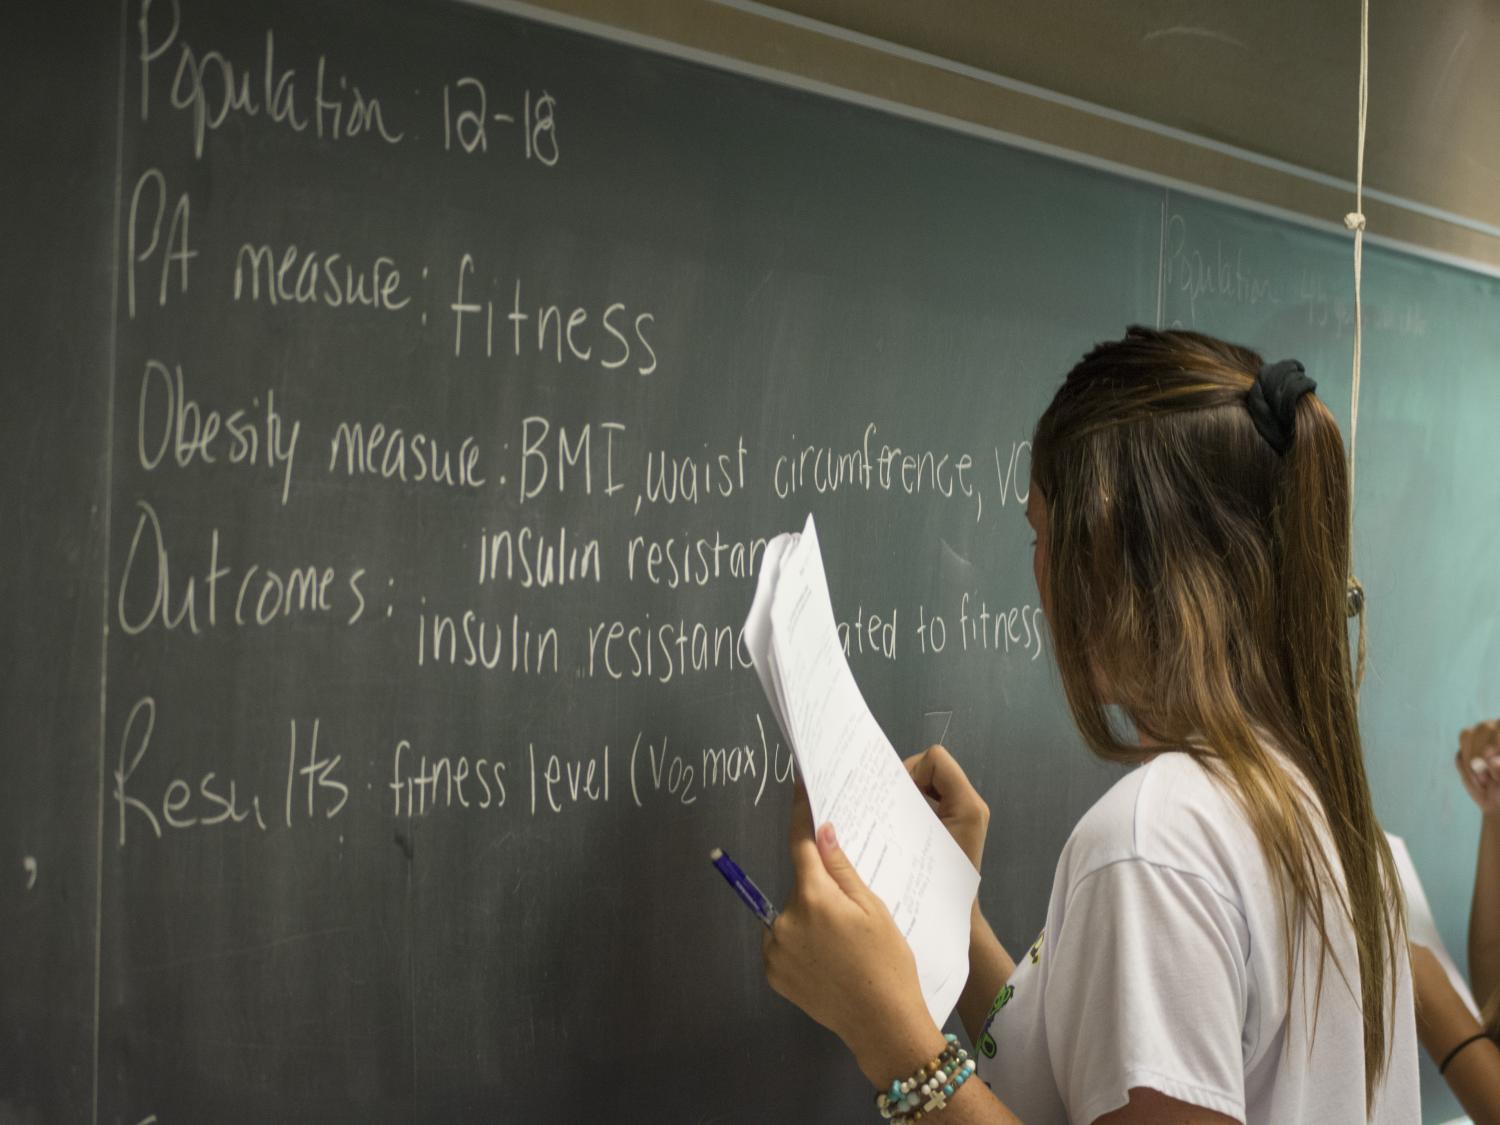 Population: 12-18
PA measure: fitness
Obesity measure: BMI, waist circumference,
Outcomes: insulin
insulin to fitness
Results: fitness level (VO2 max)
Population